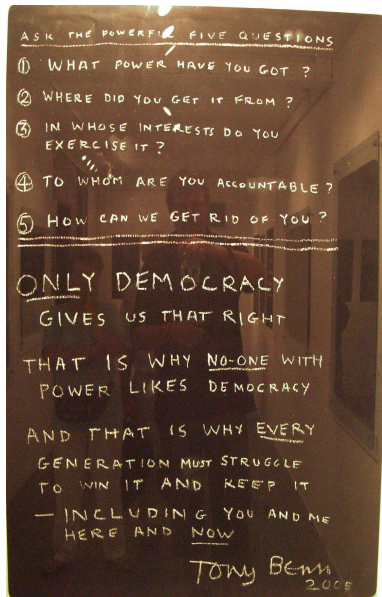 ASK THE POWERFUL FIVE QUESTIONS
① WHAT POWER HAVE YOU GOT ?
② WHERE DID YOU GET IT FROM ?
③ IN WHOSE INTERESTS DO YOU
EXERCISE IT ?
④ TO WHOM ARE YOU ACCOUNTABLE ?
⑤ HOW CAN WE GET RID OF YOU ?
ONLY DEMOCRACY
GIVES US THAT RIGHT
THAT IS WHY NO-ONE WITH
POWER LIKES DEMOCRACY
AND THAT IS WHY EVERY
GENERATION MUST STRUGGLE
TO WIN IT AND KEEP IT
– INCLUDING YOU AND ME
HERE AND NOW
Tony Benn
2005